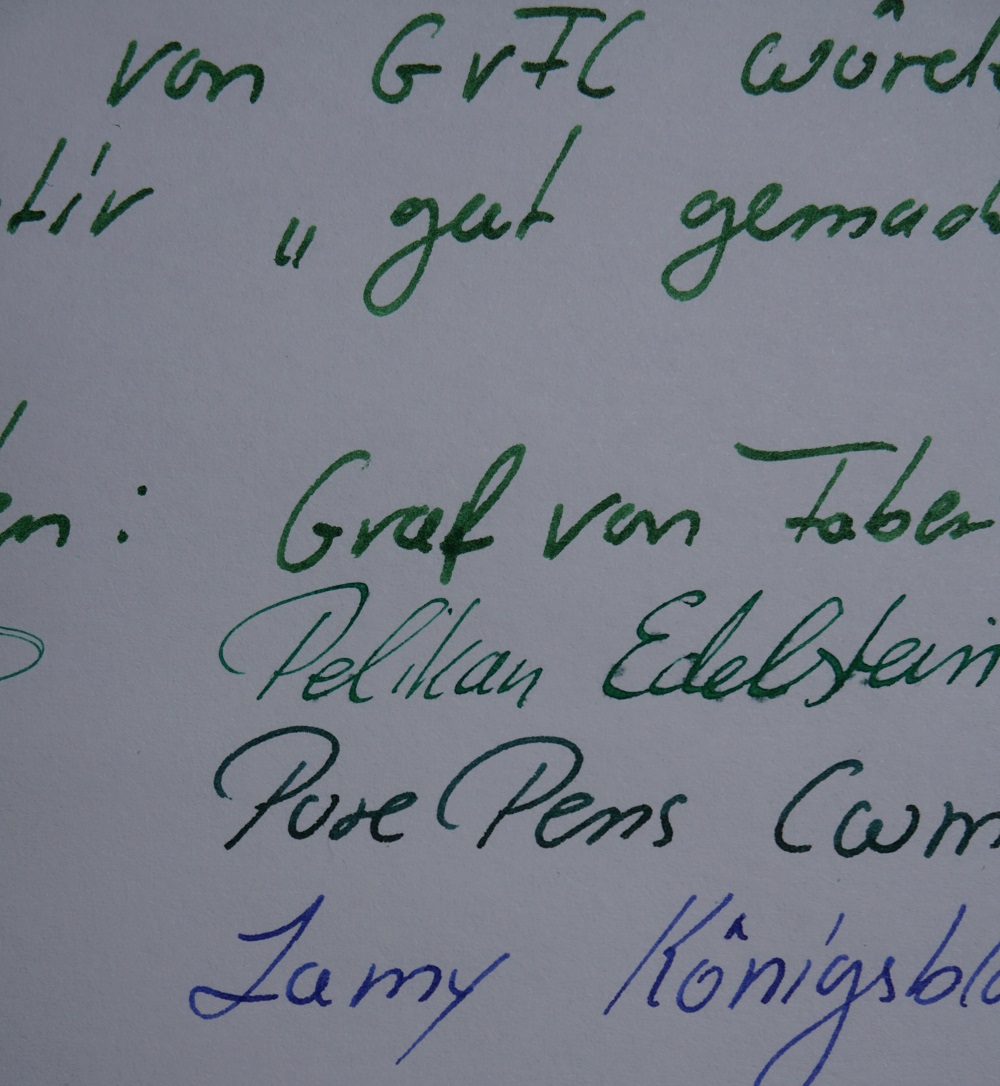 von GvFC würde
tiv „gut gemach
en: Graf von Faber
Pelikan Edelstein
Pure Pens Cwm
Lamy Königsbla